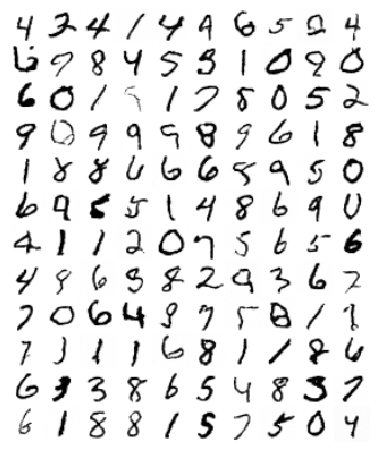 4 2 4 1 4 9 6 5 2 4
6 9 8 4 5 3 1 0 9 0
6 0 1 5 1 7 8 0 5 2
9 0 9 9 9 8 9 6 1 8
1 8 8 6 6 6 5 9 5 0
6 9 5 5 1 4 8 6 9 0
4 1 1 2 0 7 5 6 5 6
4 9 6 5 8 2 9 3 6 7
7 0 6 4 9 7 5 8 1 7
7 3 1 1 6 8 1 1 8 6
6 3 3 8 6 5 4 8 3 7
6 1 8 8 1 5 7 5 0 4